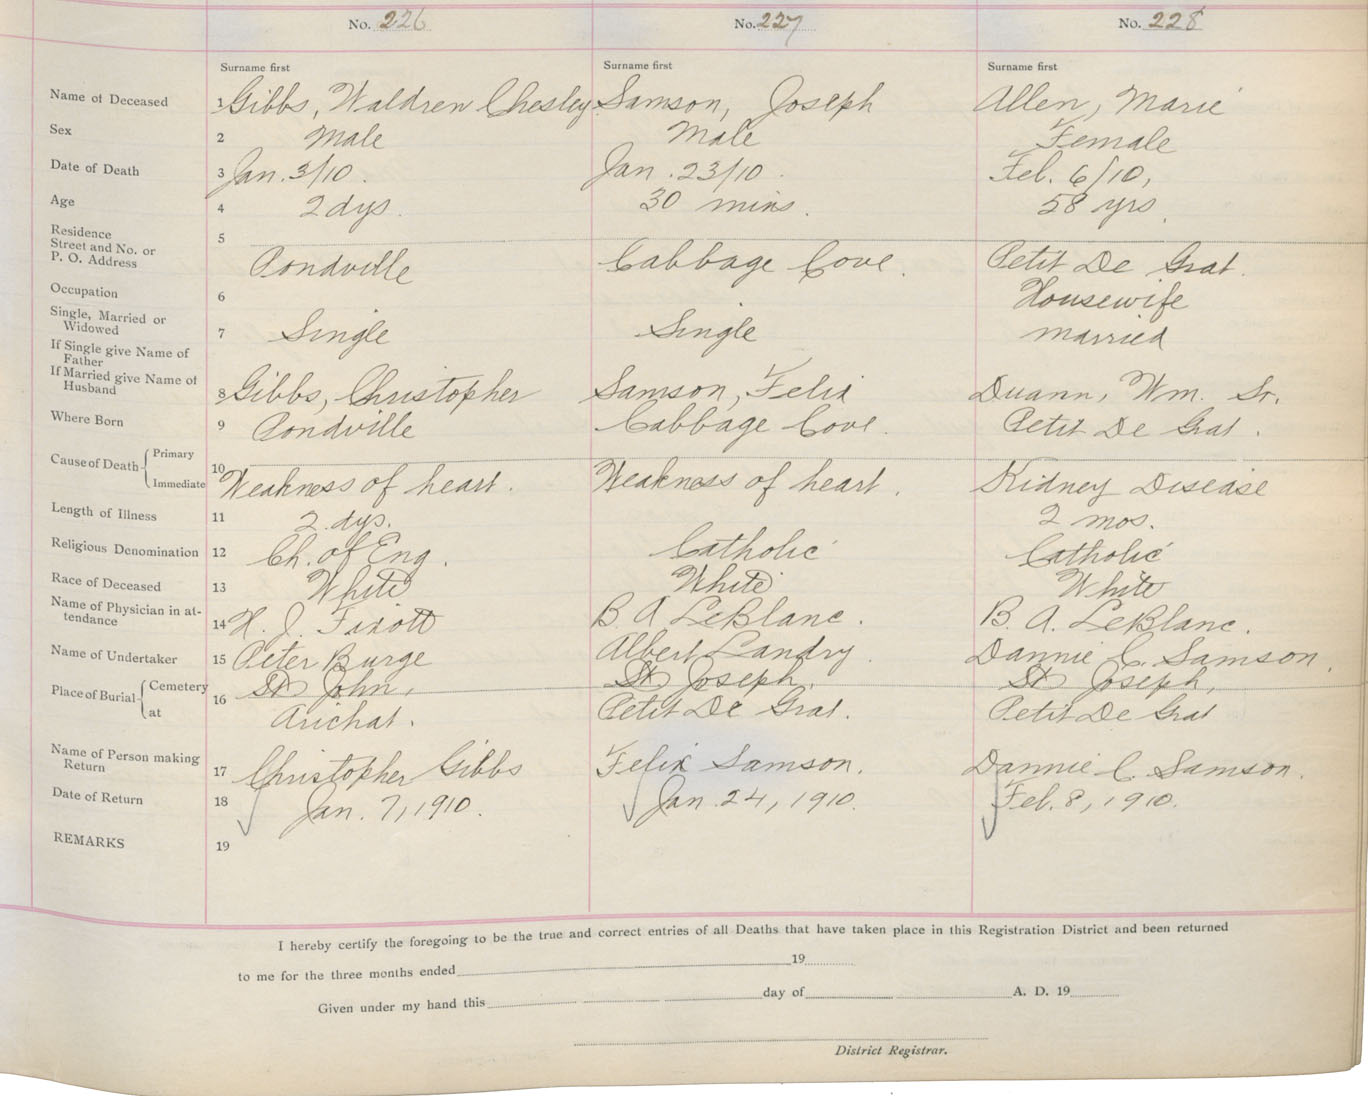 No. 226 No. 227 No. 228
Surname first Surname first Surname first
Name of Deceased 1 Gibbs, Waldren Chesley Samson, Joseph Allen, Marie
Sex 2 Male Male Female
Date of Death 3 Jan. 3/10. Jan. 23/10. Feb. 6/10,
Age 4 2 dys. 30 mins. 58 yrs.
Residence 5
Street and No. or
P. O. Address Pondville Cabbage Cove. Petit De Grat.
Occupation 6 Housewife
Single, Married or
Widowed 7 Single Single married
If Single give Name of
Father
If Married give Name of
Husband 8 Gibbs, Christopher Samson, Felix Duann, Wm. Sr.
Where Born 9 Pondville Cabbage Cove. Petit De Grat.
Cause of Death Primary
Immediate 10 Weakness of heart. Weakness of heart. Kidney Disease
Length of Illness 11 2 dys. 2 mos.
Religious Denomination 12 Ch. of Eng. Catholic Catholic
Race of Deceased 13 White White White
Name of Physician in at-
tendance 14 H. J. Fixott B. A LeBlanc. B. A. LeBlanc.
Name of Undertaker 15 Peter Burge Albert Landry. Dannie C. Samson.
Place of Burial Cemetery 16 St John, St Joseph, St Joseph,
at Arichat. Petit De Grat. Petit De Grat
Name of Person making
Return 17 Christopher Gibbs Felix Samson. Dannie C. Samson.
Date of Return 18 Jan. 7, 1910. Jan. 24, 1910. Feb. 8, 1910.
REMARKS 19
I hereby certify the foregoing to be the true and correct entries of all Deaths that have taken place in this Registration District and been returned
to me for the three months ended 19
Given under my hand this day of A. D. 19
District Registrar.